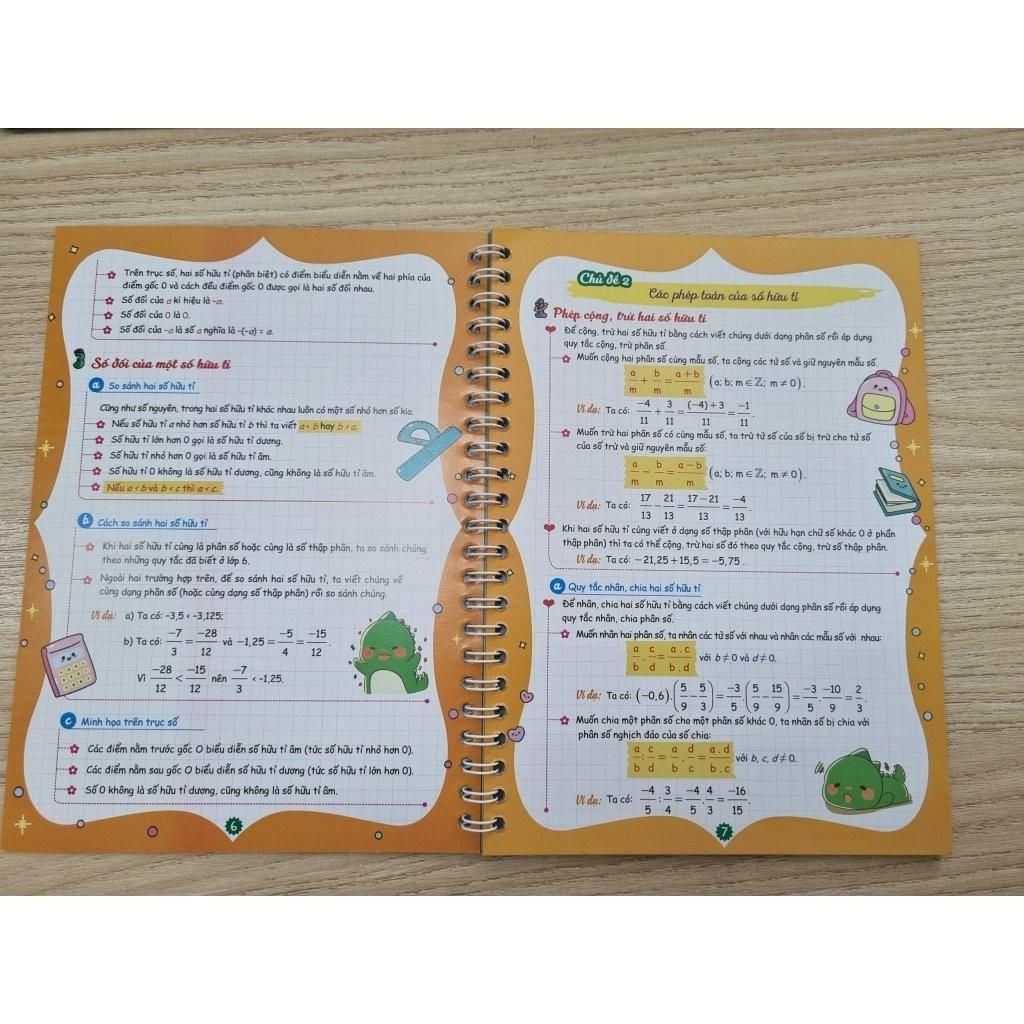 Trên trục số, hai số hữu tỉ (phân biệt) có điểm biểu diễn nằm về hai phía của
điểm gốc O và cách đều điểm gốc O được gọi là hai số đối nhau.
Số đối của a kí hiệu là -a.
Số đối của 0 là 0.
Số đối của -a là số a nghĩa là -(-a) = a.
Số đối của một số hữu tỉ
a So sánh hai số hữu tỉ
Cũng như số nguyên, trong hai số hữu tỉ khác nhau luôn có một số nhỏ hơn số kia.
Nếu số hữu tỉ a nhỏ hơn số hữu tỉ b thì ta viết a < b hay b > a.
Số hữu tỉ lớn hơn 0 gọi là số hữu tỉ dương.
Số hữu tỉ nhỏ hơn 0 gọi là số hữu tỉ âm.
Số hữu tỉ 0 không là số hữu tỉ dương, cũng không là số hữu tỉ âm.
Nếu a < b và b < c thì a < c.
b Cách so sánh hai số hữu tỉ
Khi hai số hữu tỉ cùng là phân số hoặc cùng là số thập phân, ta so sánh chúng
theo những quy tắc đã biết ở lớp 6.
Ngoài hai trường hợp trên, để so sánh hai số hữu tỉ, ta viết chúng về
cùng dạng phân số (hoặc cùng dạng số thập phân) rồi so sánh chúng.
Ví dụ: a) Ta có: -3,5 < -3,125;
b) Ta có: -7/3 = -28/12 và -1,25 = -5/4 = -15/12.
Vì -28/12 < -15/12 nên -7/3 < -1,25.
c Minh họa trên trục số
Các điểm nằm trước gốc O biểu diễn số hữu tỉ âm (tức số hữu tỉ nhỏ hơn 0).
Các điểm nằm sau gốc O biểu diễn số hữu tỉ dương (tức số hữu tỉ lớn hơn 0).
Số 0 không là số hữu tỉ dương, cũng không là số hữu tỉ âm.
6
Chủ đề 2
Các phép toán của số hữu tỉ
Phép cộng, trừ hai số hữu tỉ
Để cộng, trừ hai số hữu tỉ bằng cách viết chúng dưới dạng phân số rồi áp dụng
quy tắc cộng, trừ phân số.
Muốn cộng hai phân số cùng mẫu số, ta cộng các tử số và giữ nguyên mẫu số.
a/m + b/m = (a + b)/m (a; b; m ∈ ℤ; m ≠ 0).
Ví dụ: Ta có: -4/11 + 3/11 = ((-4) + 3)/11 = -1/11.
Muốn trừ hai phân số có cùng mẫu số, ta trừ tử số của số bị trừ cho tử số
của số trừ và giữ nguyên mẫu số:
a/m - b/m = (a - b)/m (a; b; m ∈ ℤ; m ≠ 0).
Ví dụ: Ta có: 17/13 - 21/13 = (17 - 21)/13 = -4/13.
Khi hai số hữu tỉ cùng viết ở dạng số thập phân (với hữu hạn chữ số khác 0 ở phần
thập phân) thì ta có thể cộng, trừ hai số đó theo quy tắc cộng, trừ số thập phân.
Ví dụ: Ta có: -21,25 + 15,5 = -5,75.
a Quy tắc nhân, chia hai số hữu tỉ
Để nhân, chia hai số hữu tỉ bằng cách viết chúng dưới dạng phân số rồi áp dụng
quy tắc nhân, chia phân số.
Muốn nhân hai phân số, ta nhân các tử số với nhau và nhân các mẫu số với nhau:
a/b . c/d = a.c/b.d với b ≠ 0 và d ≠ 0.
Ví dụ: Ta có: (-0,6).(5/9 - 5/3) = -3/5 . (5/9 - 15/9) = -3/5 . -10/9 = 2/3.
Muốn chia một phân số cho một phân số khác 0, ta nhân số bị chia với
phân số nghịch đảo của số chia:
a/b : c/d = a/b . d/c = a.d/b.c với b, c, d ≠ 0.
Ví dụ: Ta có: -4/5 : 3/4 = -4/5 . 4/3 = -16/15.
7